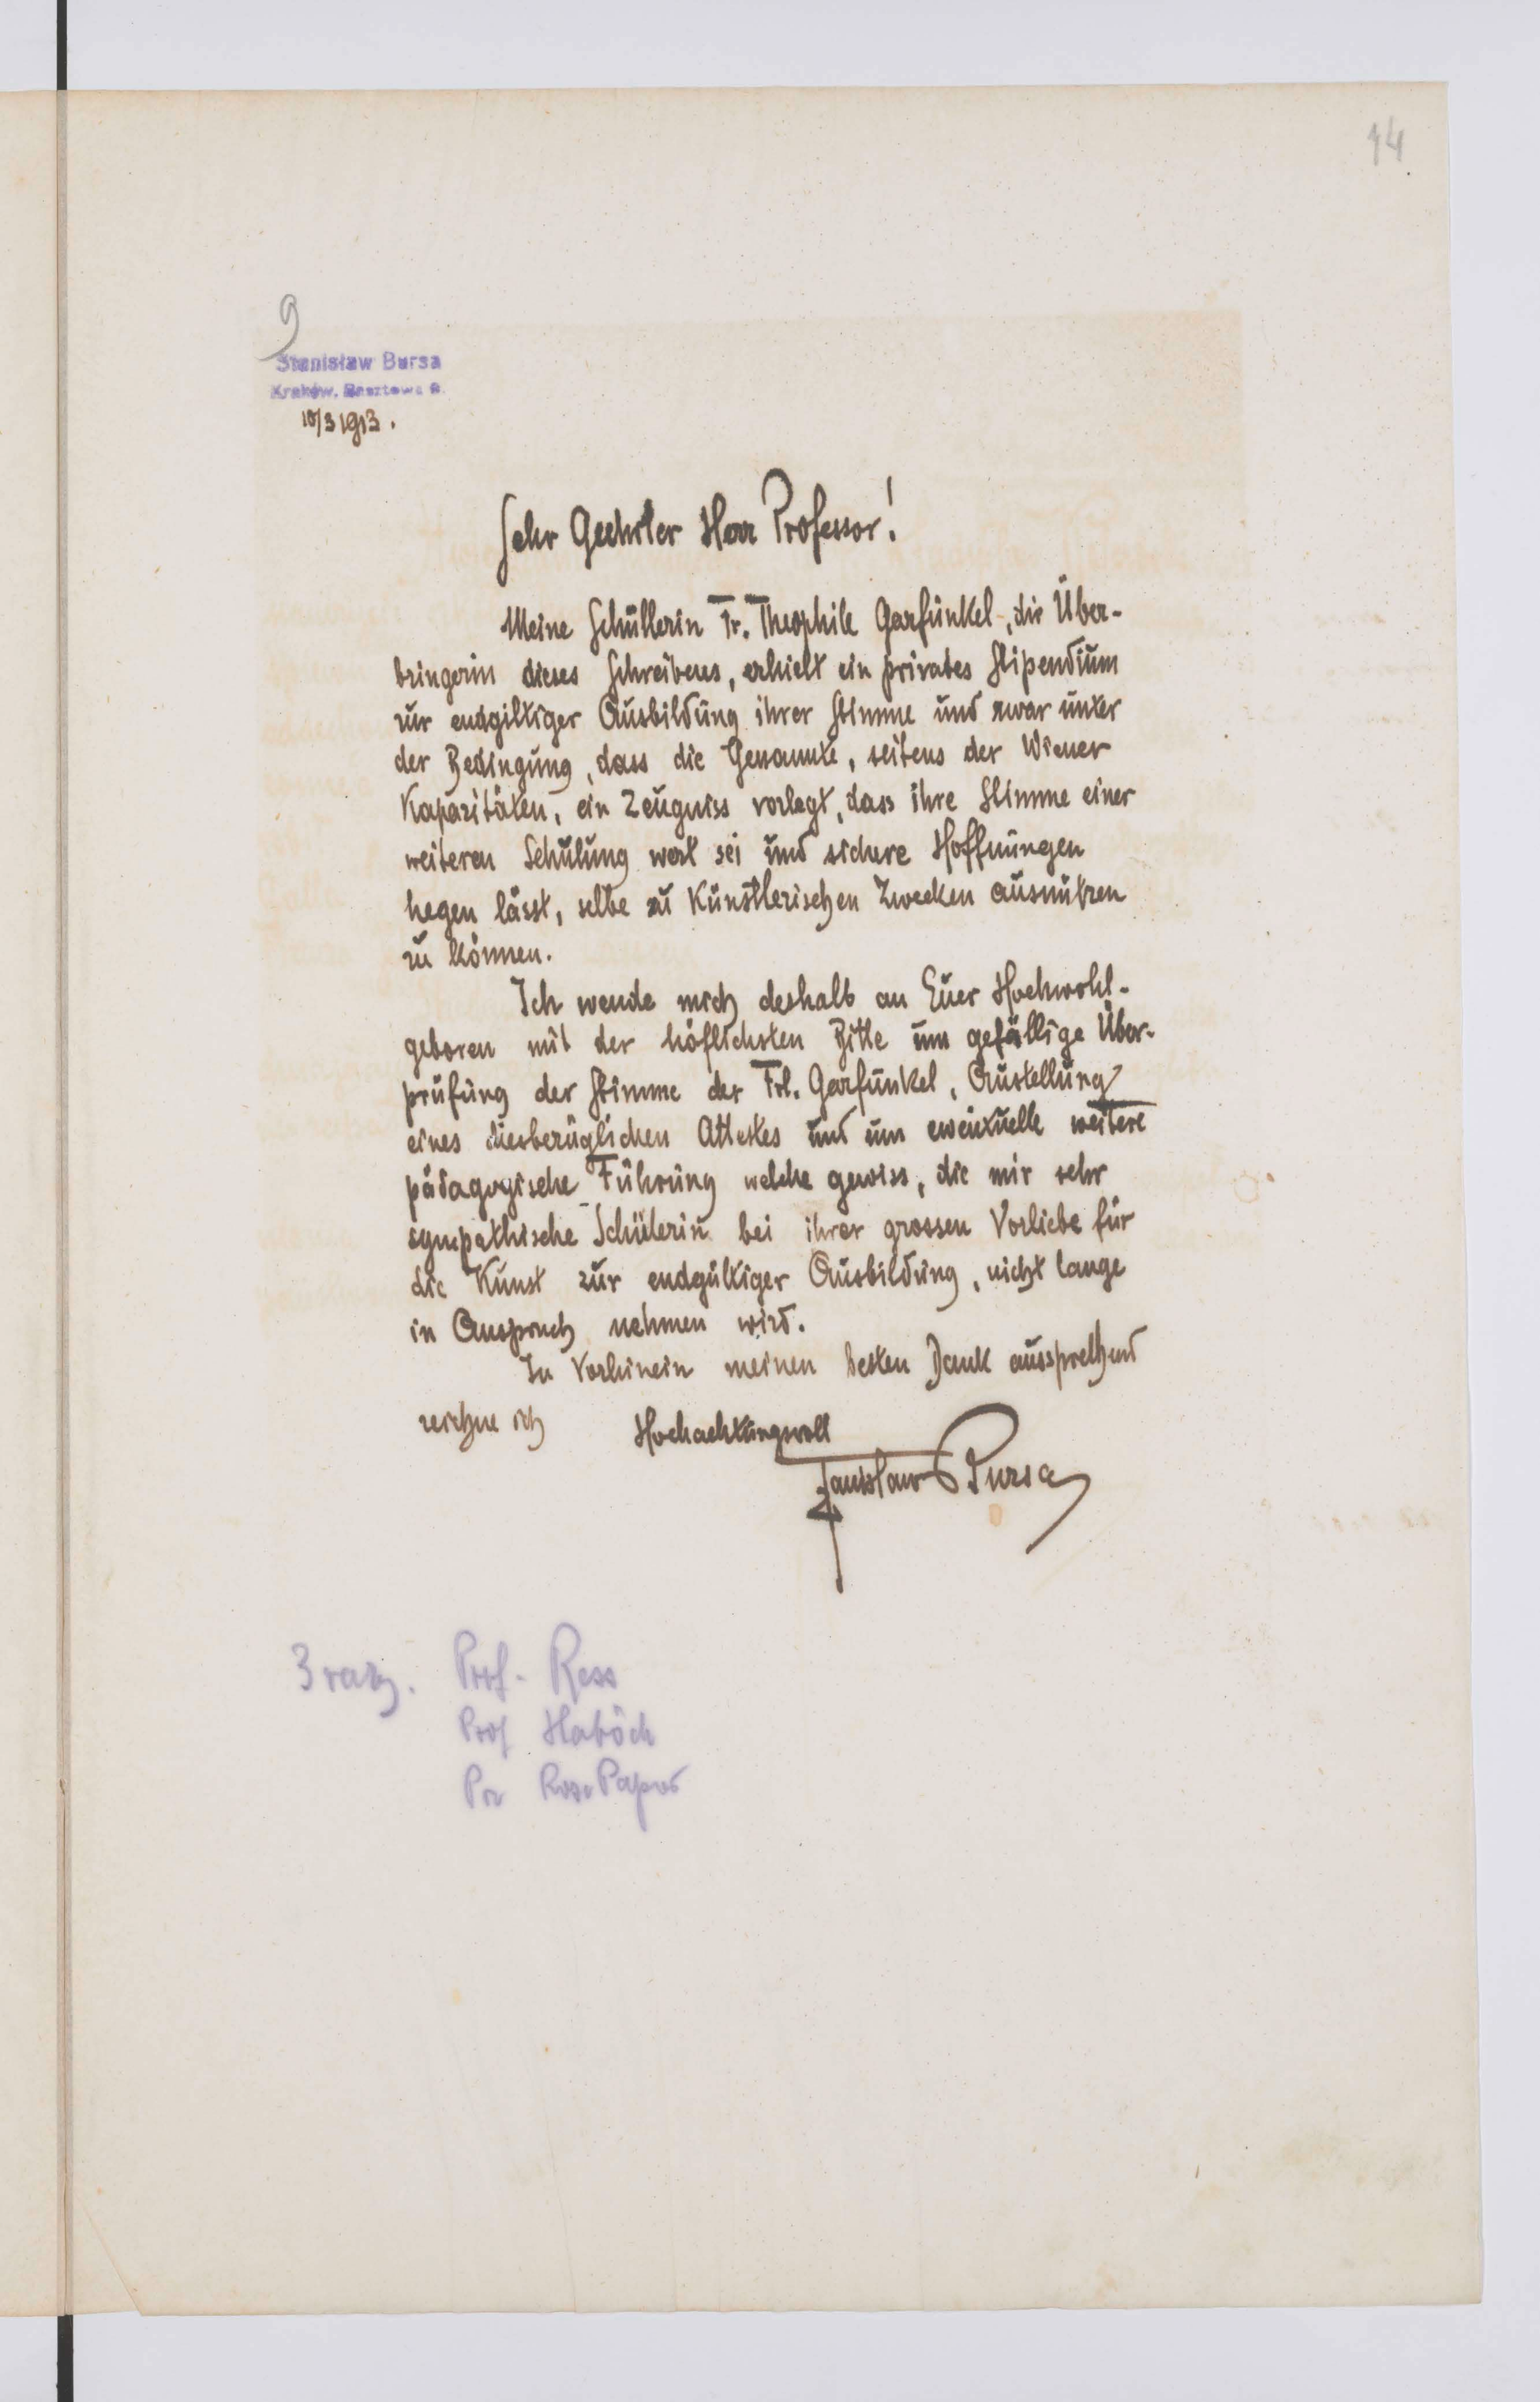 14
9
Stanisław Bursa
Kraków, Basztowa
10/3 1913.
Sehr Geehrter Herr Professor!
Meine Schüllerin Fr. Theophile Garfunkel, die Über-
bringerin dieses Schreibens, erhielt ein privates Stipendium
zur endgiltiger Ausbildung ihrer Stimme und zwar unter
der Bedingung, dass die Genannte, seitens der Wiener
Kapazitäten, ein Zeugniss vorlegt, dass ihre Stimme einer
weiteren Schulung wert sei und sichere Hoffnungen
hegen lässt, selbe zu künstlerischen Zwecken ausnützen
zu können.
Ich wende mich deshalb an Euer Hochwohl-
geboren mit der höflichsten Bitte um gefällige Über-
prüfung der Stimme der Frl. Garfunkel, Austellung
eines diesbezüglichen Attestes und um eventuelle weitere
pädagogische Führung welche gewiss, die mir sehr
sympathische Schülerin bei ihrer grossen Vorliebe für
die Kunst zur endgültiger Ausbildung, nicht lange
in Anspruch nehmen wird.
In Vorhinein meinen besten Dank aussprechend
zeichne ich Hochachtungsvoll
Stanisław Bursa
3 razy. Prof. Ress
Prof Haböck
Rosa Papier